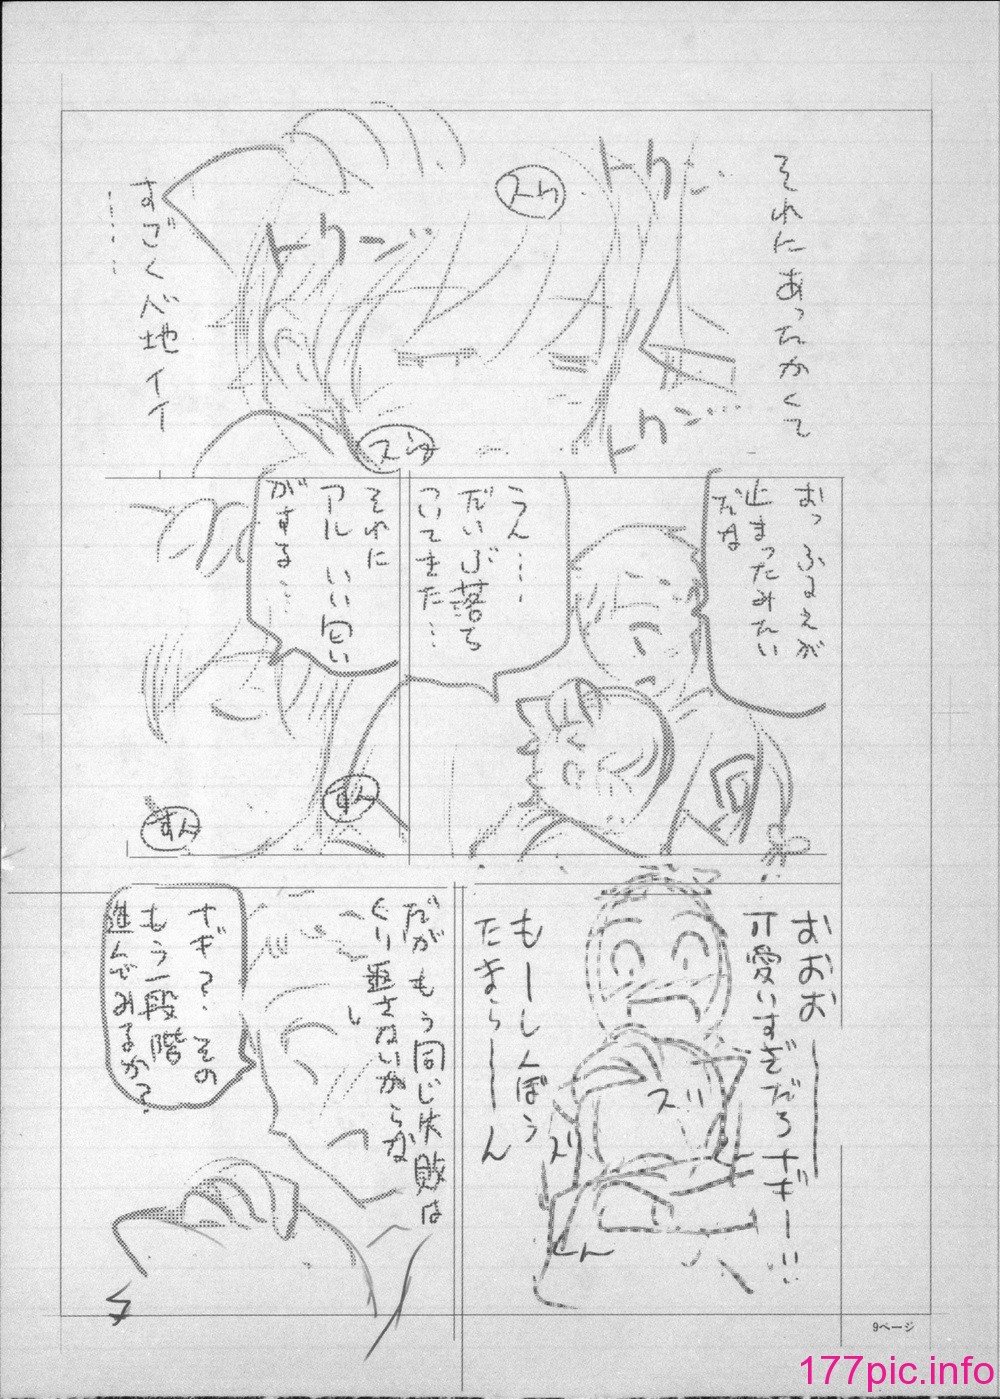 それにあったかくて
トクン…
スゥ
トクン…
トクン…
すごく心地イイ
………
おっ ふるえが
止まったみたい
だな
うん……
だいぶ落ち
ついてきた…
それに
アル いい匂い
がする…
すん
すん
おおお――
可愛いすぎだろナギー…
もーしんぼう
たまら――ん
スリ
スリ
くん
だが もう同じ失敗は
くり返さないからな
ナギ?. その
もう一段階
進んでみるか?
9ページ
177pic.info